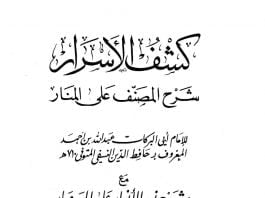 كشف الأسرار
شرح المصنف على المنار
للإمام أبي البركات عبد الله بن أحمد
المعروف بحافظ الدين النسفي المتوفى ٧١٠هـ
مع